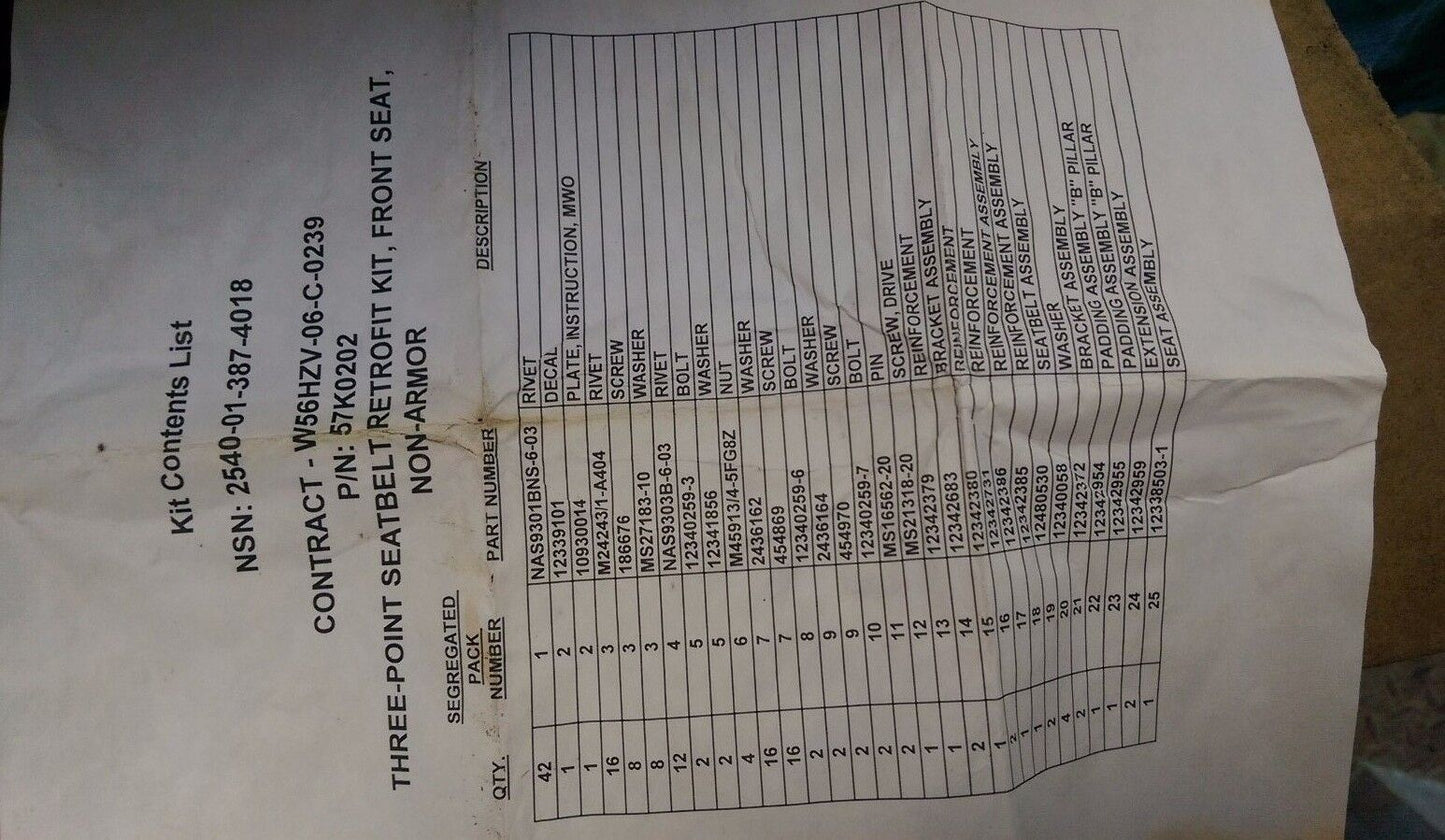 Kit Contents List
NSN: 2540-01-387-4018
CONTRACT - W56HZV-06-C-0239
P/N: 57K0202
THREE-POINT SEATBELT RETROFIT KIT, FRONT SEAT,
NON-ARMOR
SEGREGATED
PACK
QTY. NUMBER PART NUMBER DESCRIPTION
42 1 NAS9301BNS-6-03 RIVET
1 2 12339101 DECAL
1 2 10930014 PLATE, INSTRUCTION, MWO
16 3 M24243/1-A404 RIVET
8 3 186676 SCREW
8 3 MS27183-10 WASHER
12 4 NAS9303B-6-03 RIVET
2 5 12340259-3 BOLT
2 5 12341856 WASHER
4 6 M45913/4-5FG8Z NUT
16 7 2436162 WASHER
16 7 454869 SCREW
2 8 12340259-6 BOLT
2 9 2436164 WASHER
2 9 454970 SCREW
2 10 12340259-7 BOLT
2 11 MS16562-20 PIN
1 12 MS21318-20 SCREW, DRIVE
1 13 12342379 REINFORCEMENT
2 14 12342683 BRACKET ASSEMBLY
1 15 12342380 REINFORCEMENT
2 16 12342731 REINFORCEMENT
1 17 12342386 REINFORCEMENT ASSEMBLY
1 18 12342385 REINFORCEMENT ASSEMBLY
2 19 12480530 SEATBELT ASSEMBLY
4 20 12340058 WASHER
2 21 12342372 BRACKET ASSEMBLY "B" PILLAR
1 22 12342954 PADDING ASSEMBLY "B" PILLAR
1 23 12342955 PADDING ASSEMBLY
2 24 12342959 EXTENSION ASSEMBLY
1 25 12338503-1 SEAT ASSEMBLY